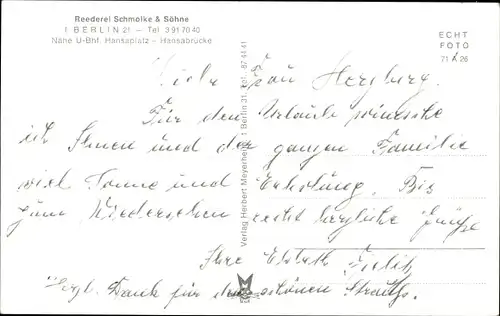 Reederei Schmolke & Söhne
1 BERLIN 21 — Tel. 3 91 70 40
Nähe U-Bhf. Hansaplatz – Hansabrücke
ECHT
FOTO
71 A 26
Verlag Herbert Meyerheim, 1 Berlin 31, Tel. 87 44 41
Frau Herzberg.
Für den Urlaub wünsche
ich Ihnen und der ganzen Familie
viel Sonne und Erholung. Bis
zum Wiedersehen recht herzliche Grüße
Ihre Elsbeth
Herzl. Dank für den schönen Strauß.